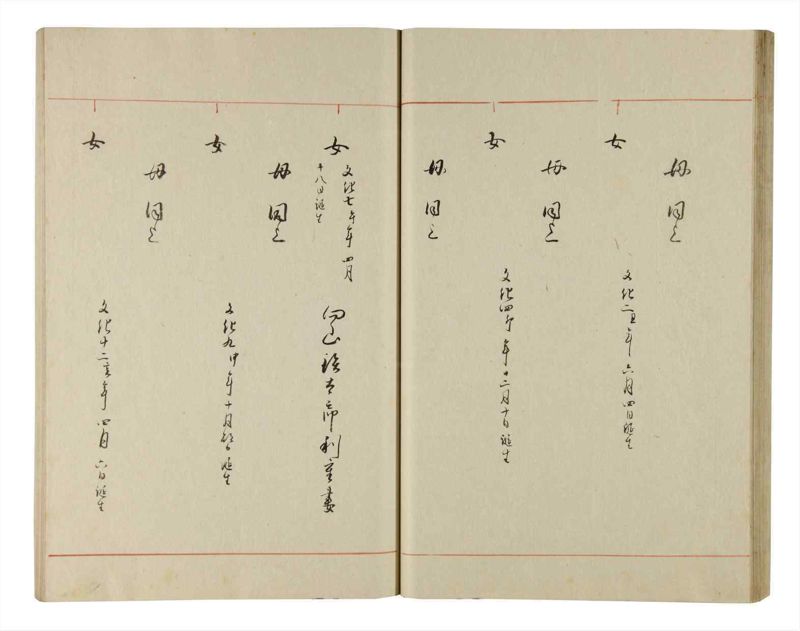 母同上
女
文化二丑年六月四日誕生
母同上
女
文化四卯年十二月十日誕生
母同上
女
文化七午年四月
十八日誕生
母同上
女
文化九申年十月 誕生
母同上
女
文化十二亥年四月六日誕生